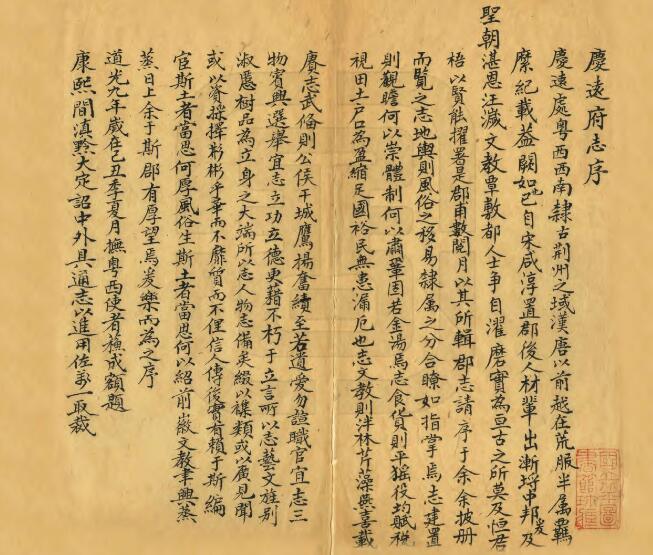 慶遠府志序
慶遠處粵西西南隸古荆州之域漢唐以前越在荒服半属羈
縻紀載益闕如也自宋咸淳置郡後人材輩出漸埒中邦爰及
聖朝湛恩汪濊文教覃敷都人士争自濯磨實為亘古之所莫及恒君
梧以賢能擢署是郡甫數閱月以其所輯郡志請序于余余披册
而覽之志地輿則風俗之移易隸属之分合瞭如指掌焉志建置
則觀瞻何以崇體制何以肅鞏固若金湯焉志食貨則平猺役均賦税
視田土戶口為盈縮足國裕民無患漏卮也志文教則泮林芹藻燕喜載
賡志武俻則公侯干城鷹揚奮績至若遺愛勿諠職官宜志三
物賓興選舉宜志立功立德更藉不朽于立言所以志藝文旌别
淑慝樹品為立身之大端所以志人物志備矣綴以襍類或以廣見聞
或以資採擇彬彬乎華而不靡質而不俚信今傳後實有賴于斯編
宦斯土者當思何厚風俗生斯土者當思何以紹前徽文教聿興蒸
蒸日上余于斯郡有厚望焉爰樂而為之序
道光九年歲在己丑季夏月撫粵西使者穌成額題
康熙間滇黔大定詔中外具通志以進用佐乙一取裁